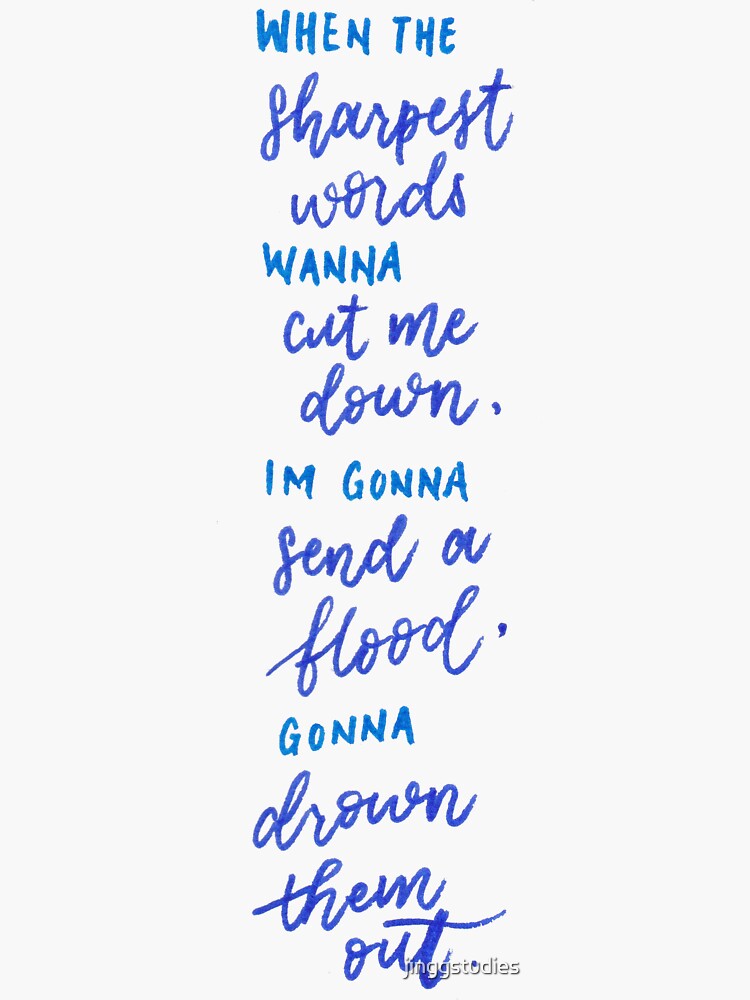 WHEN THE
sharpest
words
WANNA
cut me
down,
IM GONNA
send a
flood,
GONNA
drown
them
out.
jinggstudies